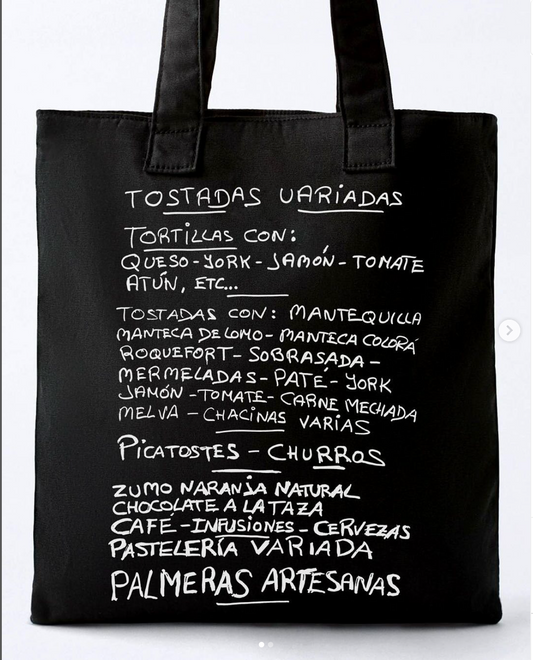 TOSTADAS VARIADAS
TORTILLAS CON:
QUESO-YORK-JAMÓN-TOMATE
ATÚN, ETC...
TOSTADAS CON: MANTEQUILLA
MANTECA DE LOMO- MANTECA COLORÁ
ROQUEFORT- SOBRASADA-
MERMELADAS- PATÉ- YORK
JAMÓN -TOMATE- CARNE MECHADA
MELVA - CHACINAS VARIAS
PICATOSTES - CHURROS
ZUMO NARANJA NATURAL
CHOCOLATE A LA TAZA
CAFÉ-INFUSIONES-CERVEZAS
PASTELERÍA VARIADA
PALMERAS ARTESANAS